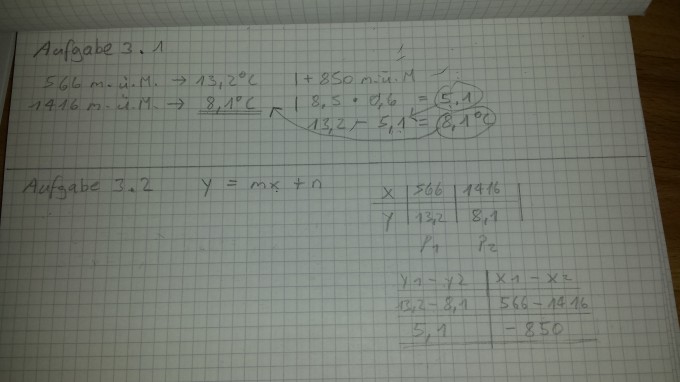 Aufgabe 3.1
566 m.ü.M. → 13,2°C | + 850 m.ü.M
1416 m.ü.M. → 8,1°C | 8,5 · 0,6 = 5,1
13,2 - 5,1 = 8,1°C
Aufgabe 3.2 y = mx + n
x | 566 | 1416
y | 13,2 | 8,1
P1 P2
y1 - y2 | x1 - x2
13,2 - 8,1 | 566 - 1416
5,1 | - 850